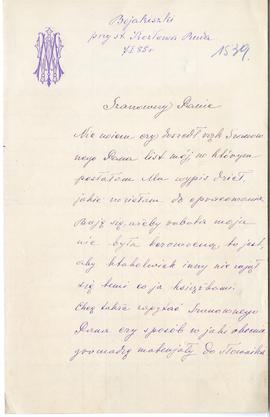 Bojakiszki
przy st. Kozłowa Ruda
1539.
Szanowny Panie
Nie wiem czy doszedł rąk Szanow
nego Pana list mój, w którym
posłałam Mu wypis dzieł,
jakie wzięłam do opracowania
Boję się ażeby robota moja
nie była bezowocną to jest,
aby ktokolwiek inny nie zajął
się temi co ja książkami.
Chcę także zapytać Szanownego
Pana czy sposób w jaki obecnie
gromadzę materjały do Słownika